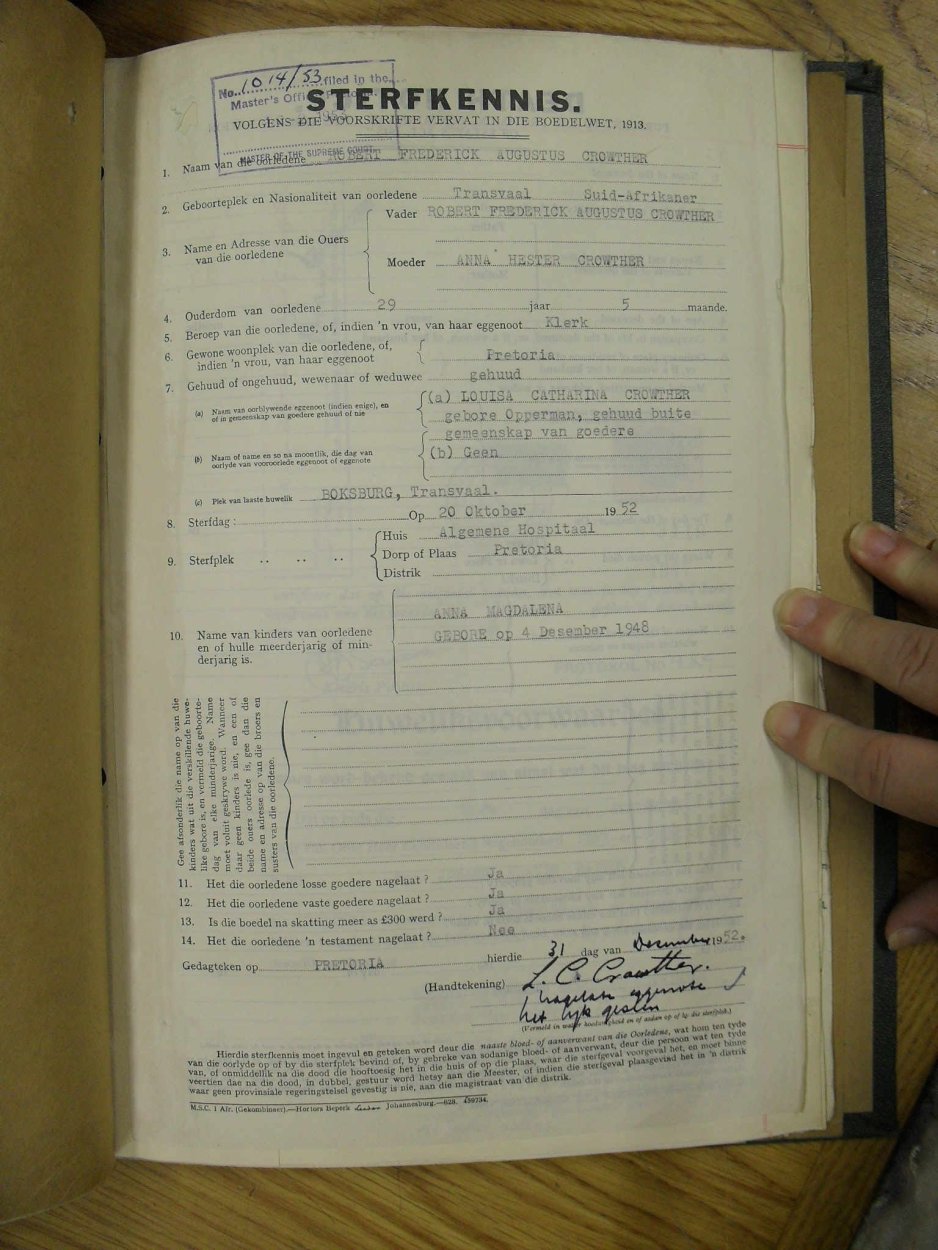 No. 1014/53 filed in the
Master's Office
MASTER OF THE SUPREME COURT
STERFKENNIS.
VOLGENS DIE VOORSKRIFTE VERVAT IN DIE BOEDELWET, 1913.
1. Naam van die oorledene ROBERT FREDERICK AUGUSTUS CROWTHER
2. Geboorteplek en Nasionaliteit van oorledene Transvaal Suid-Afrikaner
3. Name en Adresse van die Ouers van die oorledene
Vader ROBERT FREDERICK AUGUSTUS CROWTHER
Moeder ANNA HESTER CROWTHER
4. Ouderdom van oorledene 29 jaar 5 maande.
5. Beroep van die oorledene, of, indien 'n vrou, van haar eggenoot Klerk
6. Gewone woonplek van die oorledene, of,
indien 'n vrou, van haar eggenoot Pretoria
7. Gehuud of ongehuud, wewenaar of weduwee gehuud
(a) Naam van oorblywende eggenoot (indien enige), en
of in gemeenskap van goedere gehuud of nie
(a) LOUISA CATHARINA CROWTHER
gebore Opperman, gehuud buite
gemeenskap van goedere
(b) Naam of name en so na moontlik, die dag van
oorlyde van vooroorlede eggenoot of eggenote
(b) Geen
(c) Plek van laaste huwelik BOKSBURG, Transvaal.
8. Sterfdag: Op 20 Oktober 1952
9. Sterfplek
Huis Algemene Hospitaal
Dorp of Plaas Pretoria
Distrik
10. Name van kinders van oorledene
en of hulle meerderjarig of min-
derjarig is.
ANNA MAGDALENA
GEBORE op 4 Desember 1948
Gee afsonderlik die name op van die
kinders wat uit die verskillende huwe-
like gebore is, en vermeld die geboorte-
dag van elke minderjarige. Name
moet voluit geskrywe word. Wanneer
daar geen kinders is nie, en een of
beide ouers oorlede is, gee dan die
name en adresse op van die broers en
susters van die oorledene.
11. Het die oorledene losse goedere nagelaat? Ja
12. Het die oorledene vaste goedere nagelaat? Ja
13. Is die boedel na skatting meer as £300 werd? Ja
14. Het die oorledene 'n testament nagelaat? Nee
Gedagteken op PRETORIA hierdie 31 dag van Desember 1952.
(Handtekening) L. C. Crowther.
Nagelate eggenote
het lyk gesien
Hierdie sterfkennis moet ingevul en geteken word deur die naaste bloed- of aanverwant van die Oorledene, wat hom ten tyde
van die oorlyde op of by die sterfplek bevind of, by gebreke van sodanige bloed- of aanverwant, deur die persoon wat ten tyde
van, of onmiddellik na die dood die hooftoesig het in die huis of op die plaas, waar die sterfgeval voorgeval het, en moet binne
veertien dae na die dood, in dubbel, gestuur word hetsy aan die Meester, of indien die sterfgeval plaasgevind het in 'n distrik
waar geen provinsiale regeringstelsel gevestig is nie, aan die magistraat van die distrik.
M.S.C. 1 Afr. (Gekombineer).—Hortors Beperk Johannesburg.—628. 159734.